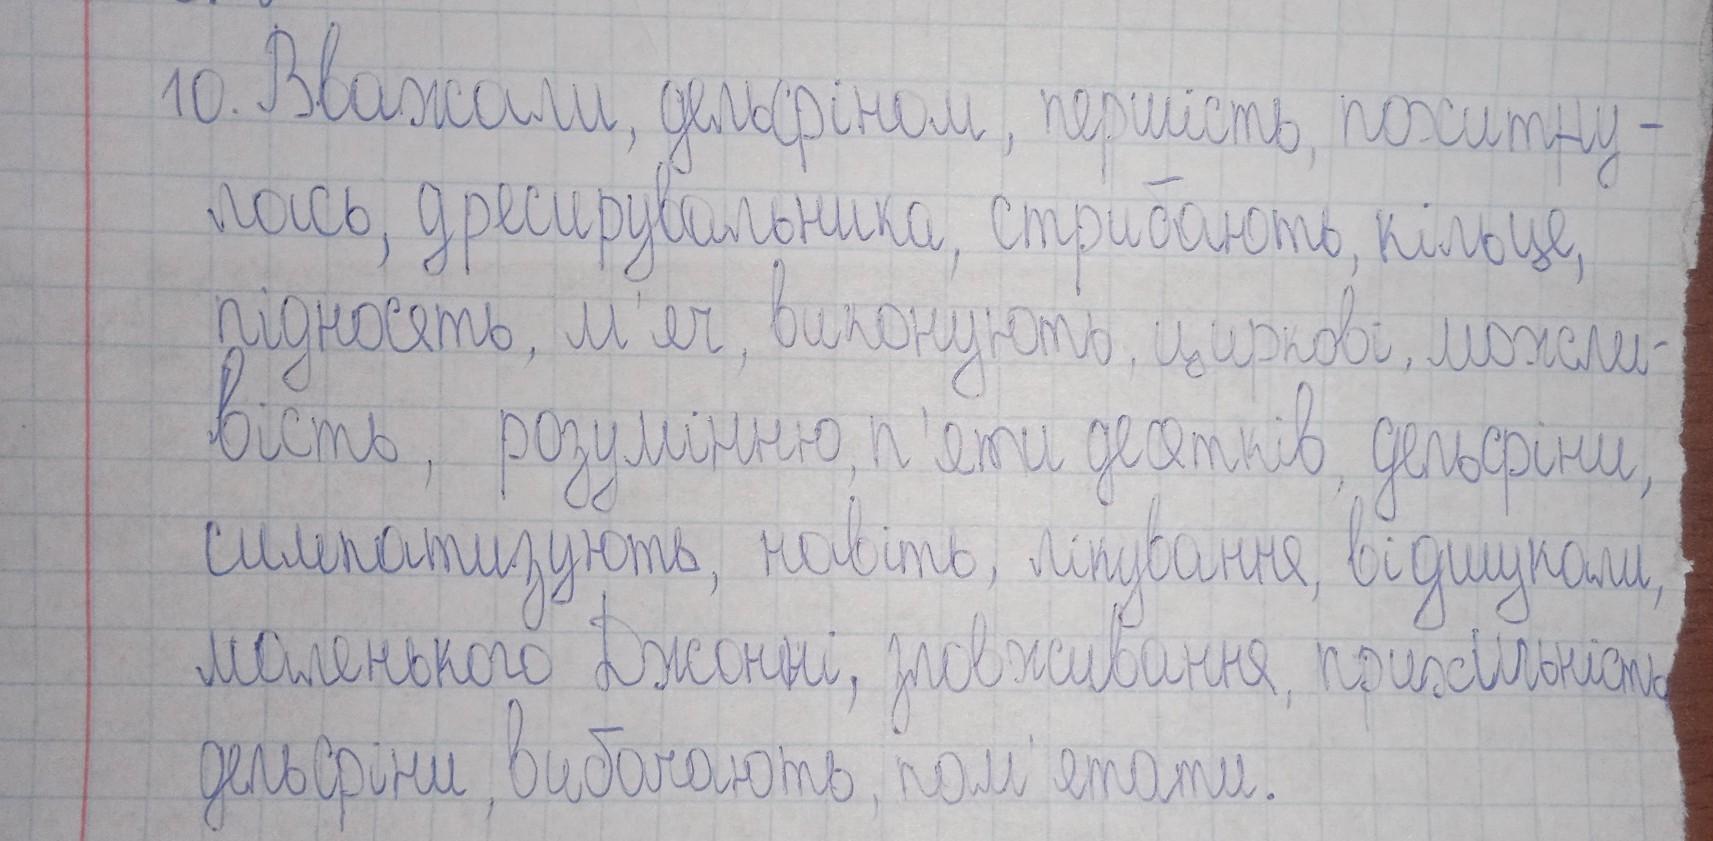 10. Вважали, дельфіном, першість, похитну-
лась, дресирувальника, стрибають, кільце,
підносять, м'яч, виконують, циркові, можли-
вість, розумінню, п'яти десятків, дельфіни,
симпатизують, навіть, лікування, відшукали,
маленького Джонні, зловживання, прихильність
дельфіни, вибачають, пам'ятати.